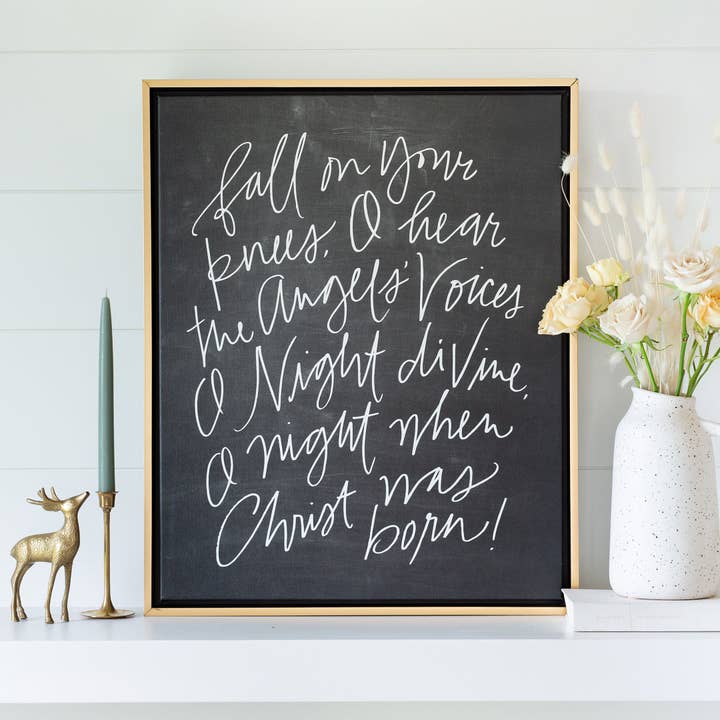 fall on your
knees, O hear
the Angels' Voices
O Night diVine,
O night when
Christ was
born!